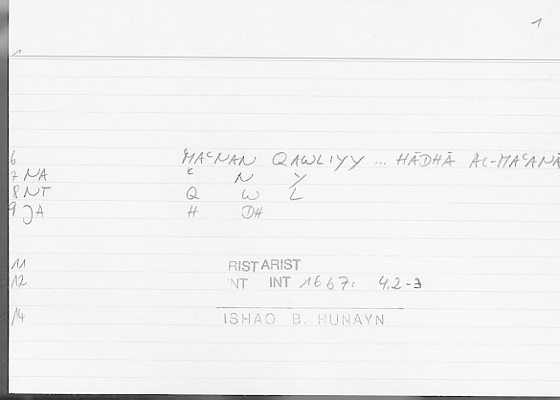 1
1
6 MAʿNAN QAWLIYY ... HĀDHĀ AL-MAʿANĀ
7 NA ʿ N Y
8 NT Q W L
9 JA H DH
11 RIST ARIST
12 NT INT 1667: 4.2-3
14 ISHAO B. HUNAYN